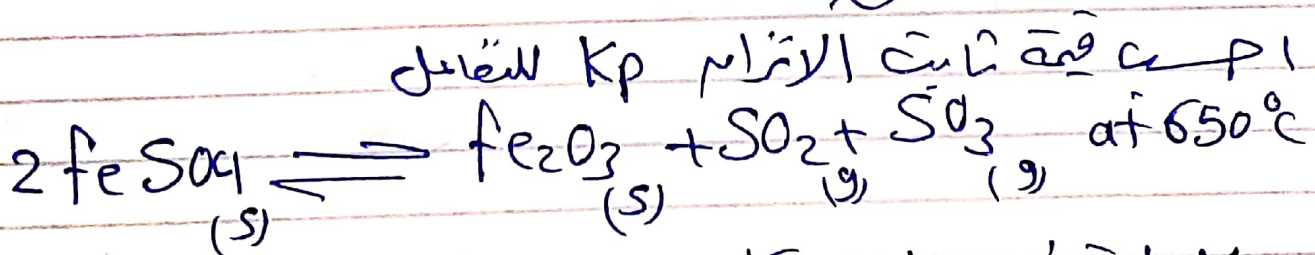 احسب قيمة ثابت الاتزان Kp للتفاعل
2 feSO4(s) ⇌ fe2O3(s) + SO2(g) + SO3(g) at 650°C